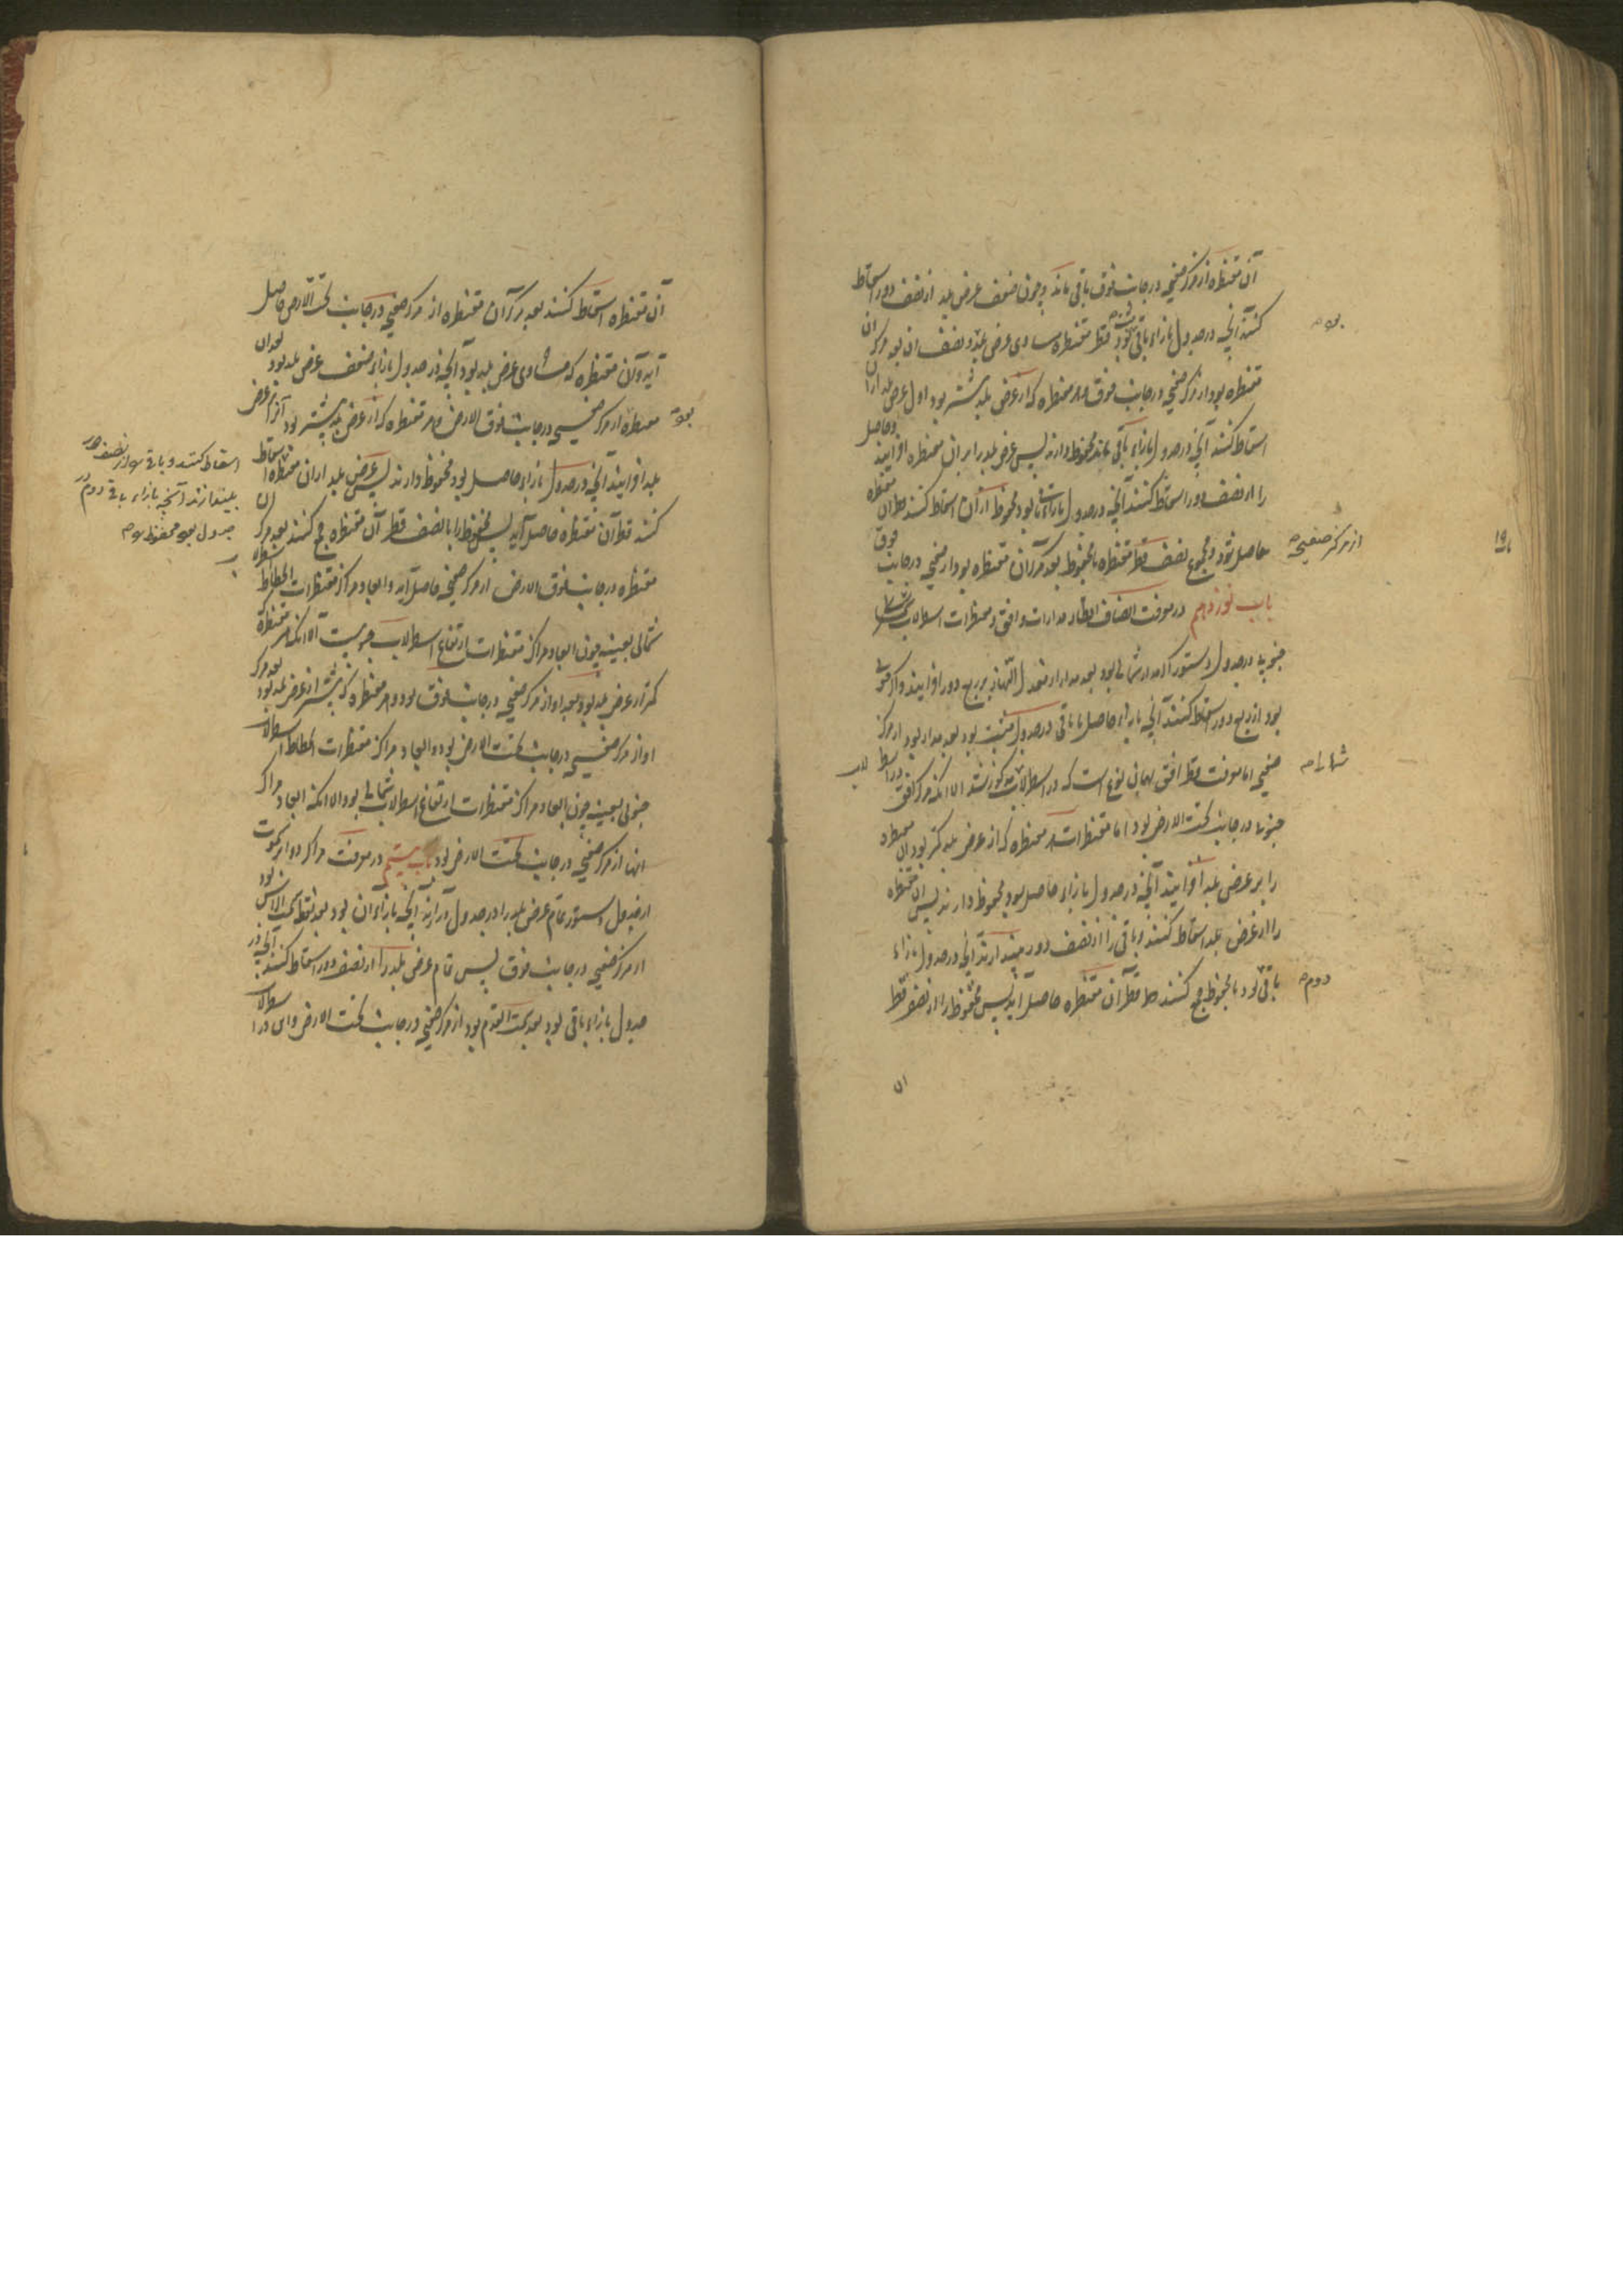 آن مقنطره از مرکز صفیحه در جانب فوق باقی ماند و چون ضعف عرض بلد از نصف دور اسقاط
کنند آنچه در جدول بازاء باقی بود قطر مقنطره مساوی عرض بلد و نصف آن بعد مرکز آن
مقنطره بود از مرکز صفیحه در جانب فوق هر مقنطره که از عرض بلد بیشتر بود اول عرض بلد از آن
اسقاط کنند آنچه در جدول بازاء باقی بماند محفوظ دارند پس عرض بلد را بر آن مقنطره افزایند و حاصل
را از نصف دور اسقاط کنند آنچه در جدول بازاء بود محفوظ از آن اسقاط کنند قطر آن مقنطره
حاصل شود و مجموع نصف قطر مقنطره با محفوظ بعد مرکز آن مقنطره بود از صفیحه در جانب فوق
از مرکز صفیحه
باب نوزدهم در معرفت انصاف اقطار مدارات و افق و مقنطرات اسطرلاب
جنوبی در جدول دستور اگر مدار شمالی بود بعد مدار از معدل النهار بر ربع دور افزایند و اگر جنوبی
بود از ربع دور اسقاط کنند آنچه بازاء حاصل یا باقی در جدول مثبت بود بعد مدار بود از مرکز
صفیحه اما معرفت قطر افق بهمان نوع است که در اسطرلاب مذکور شد الا آنکه مرکز افق
شمالی
جنوبی در جانب تحت الارض بود اما مقنطرات هر مقنطره که از عرض بلد کمتر بود آن مقنطره
را بر عرض بلد افزایند آنچه در جدول بازاء حاصل بود محفوظ دارند پس آن مقنطره
را از عرض بلد اسقاط کنند و باقی را از نصف دور بیندازند آنچه در جدول بازاء
باقی بود با محفوظ جمع کنند قطر آن مقنطره حاصل آید پس محفوظ را از نصف قطر
دوم
آن
آن مقنطره اسقاط کنند بعد مرکز آن مقنطره از مرکز صفیحه در جانب تحت الارض حاصل
آید و آن مقنطره که مساوی عرض بلد بود آنچه در جدول بازاء ضعف عرض بلد بود بعد آن
مقنطره از مرکز صفیحه در جانب فوق الارض و هر مقنطره که از عرض بلد بیشتر بود آنرا بر عرض
بلد افزایند آنچه در جدول بازاء حاصل بود محفوظ دارند پس عرض بلد از آن مقنطره اسقاط
اسقاط کنند و باقی را از نصف دور
بیندازند آنچه بازاء باقی دوم در
جدول بود محفوظ
کنند قطر آن مقنطره حاصل آید پس محفوظ را با نصف قطر آن مقنطره جمع کنند بعد مرکز آن
مقنطره در جانب فوق الارض از مرکز صفیحه حاصل آید و ابعاد مراکز مقنطرات انحطاط
شمالی بعینه چون ابعاد مراکز مقنطرات ارتفاع اسطرلاب جنوبیست الا آنکه مقنطره
کمتر از عرض بلد بود بعد او از مرکز صفیحه در جانب فوق بود و هر مقنطره که بیشتر از عرض بلد بود بعد مرکز
او از مرکز صفیحه در جانب تحت الارض بود و ابعاد مراکز مقنطرات انحطاط اسطرلاب
جنوبی بعینه چون ابعاد مراکز مقنطرات ارتفاع اسطرلاب شمالی بود الا آنکه ابعاد مراکز
آنها از مرکز صفیحه در جانب تحت الارض بود باب بیستم در معرفت مراکز دوایر سموت
از جدول دستور تمام عرض بلد را در جدول درآرند آنچه بازاء آن بود بعد نقطه سمت الرأس بود
از مرکز صفیحه در جانب فوق پس تمام عرض بلد را از نصف دور اسقاط کنند آنچه در
جدول بازاء باقی بود بعد سمت القدم بود از مرکز صفیحه در جانب تحت الارض و این در اسطرلاب